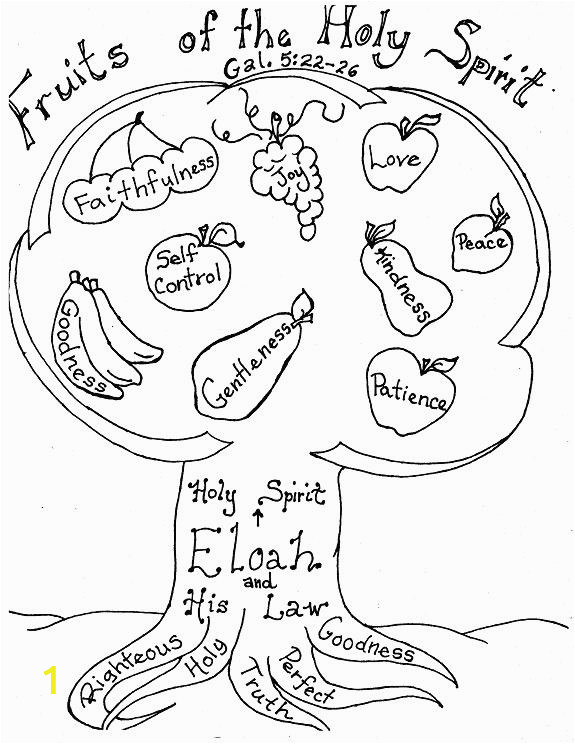 Fruits of the Holy Spirit
Gal. 5:22-26
Faithfulness
Joy
Love
Self
Control
Peace
Kindness
Goodness
Gentleness
Patience
Holy Spirit
↑
Eloah
and
His Law
Righteous
Holy
Truth
Perfect
Goodness
1